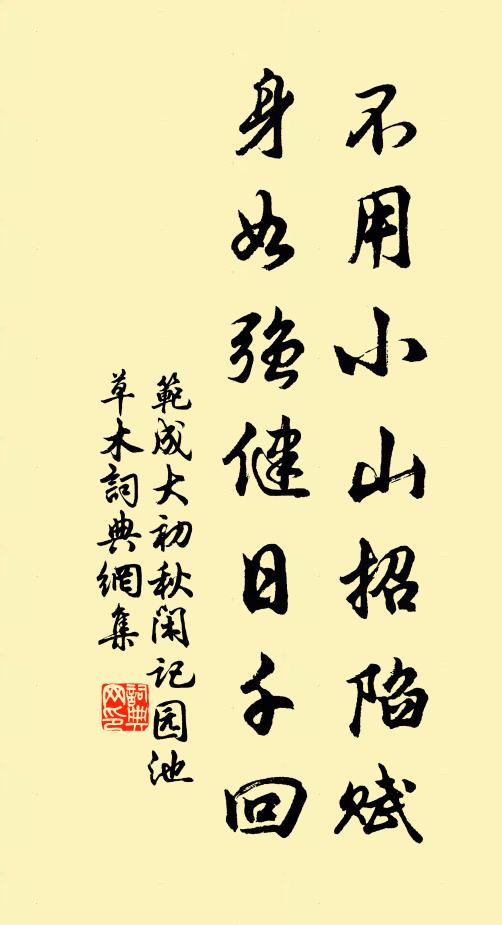 不用小山招陷赋
身如强健日千回
範成大初秋闲记园池
草木詞典網集
詞典网印